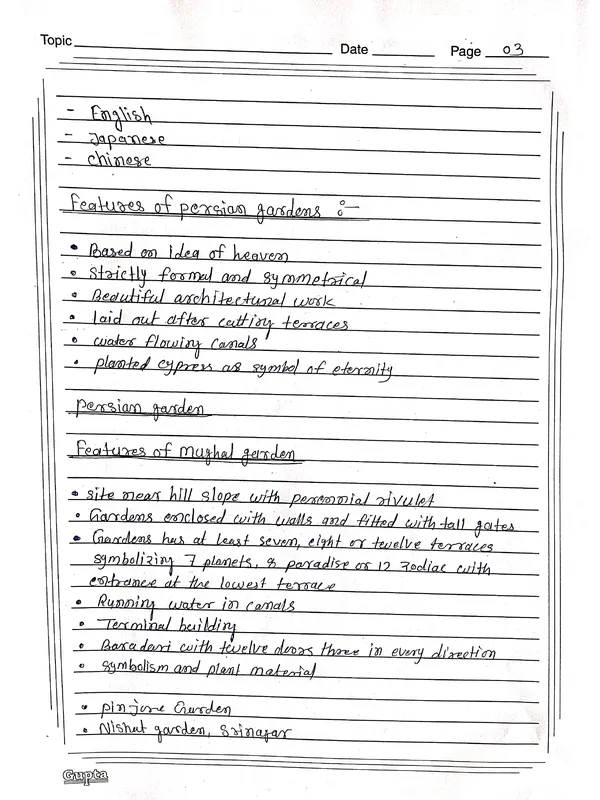 Topic Date Page 03
- English
- Japanese
- chinese
Features of persian gardens :-
• Based on idea of heaven
• Strictly formal and symmetrical
• Beautiful architectural work
• laid out after cutting terraces
• water flowing canals
• planted cypress as symbol of eternity
persian garden
Features of Mughal garden
• site near hill slope with perennial rivulet
• Gardens enclosed with walls and fitted with tall gates
• Gardens has at least seven, eight or twelve terraces
symbolizing 7 planets, 8 paradise or 12 zodiac with
entrance at the lowest terrace
• Running water in canals
• Terminal building
• Baradari with twelve doors three in every direction
• symbolism and plant material
• pinjore Garden
• Nishat garden, Srinagar
Gupta